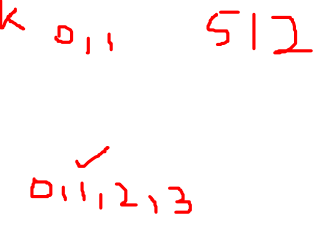 k 0,1 512
0,1,2,3